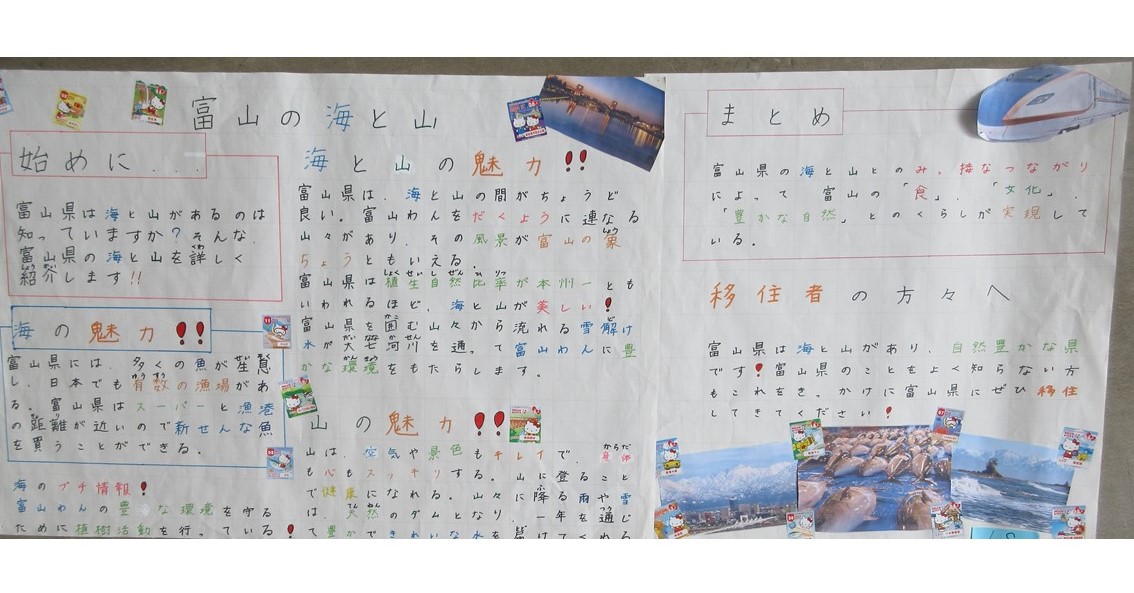 富山の海と山
始めに...
富山県は海と山があるのは
知っていますか?そんな、
富山県の海と山を詳しく
紹介します!!
海の魅力!!
富山県には、多くの魚が生息
し、日本でも有数の漁場があ
る。富山県はスーパーと漁港
の距離が近いので新せんな魚
を買うことができる。
海のプチ情報!
富山わんの豊かな環境を守る
ために植樹活動を行っている!
海と山の魅力!!
富山県は、海と山の間がちょうど
良い。富山わんをだくように連なる
山々があり、その風景が富山の象
ちょうともいえる。
富山県は植生自然比率が本州一とも
いわれるほど、海と山が美しい!
富山県を囲む山々から流れる雪解け
水が大七河川を通って富山わんに豊
かな環境をもたらします。
山の魅力!!
山は、空気や景色もキレイで、身体
も心もスッキリする。山に登ること
で健康になれる。山々に降る雨や雪
は、天然のダムとなり、一年を通じ
て豊かできれいな水を
まとめ
富山県の海と山とのみっ接なつながり
によって富山の「食」、「文化」、
「豊かな自然」とのくらしが実現して
いる。
移住者の方々へ
富山県は海と山があり、自然豊かな県
です!富山県のことをよく知らない方
もこれをきっかけに富山県にぜひ移住
してきてください!